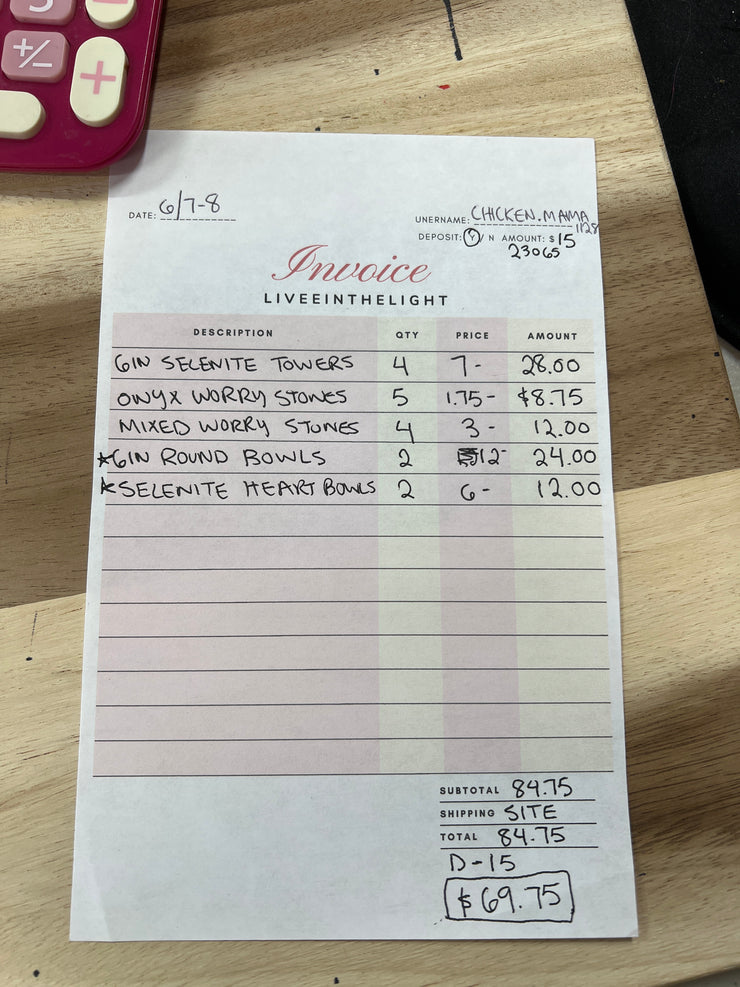 +/- +
DATE: 6/7-8
UNERNAME: CHICKEN.MAMA
1128
DEPOSIT: Y / N AMOUNT: $ 15
23065
Invoice
LIVEEINTHELIGHT
DESCRIPTION QTY PRICE AMOUNT
6IN SELENITE TOWERS 4 7- 28.00
ONYX WORRY STONES 5 1.75- $8.75
MIXED WORRY STONES 4 3- 12.00
*6IN ROUND BOWLS 2 12- 24.00
*SELENITE HEART BOWLS 2 6- 12.00
SUBTOTAL 84.75
SHIPPING SITE
TOTAL 84.75
D-15
$69.75